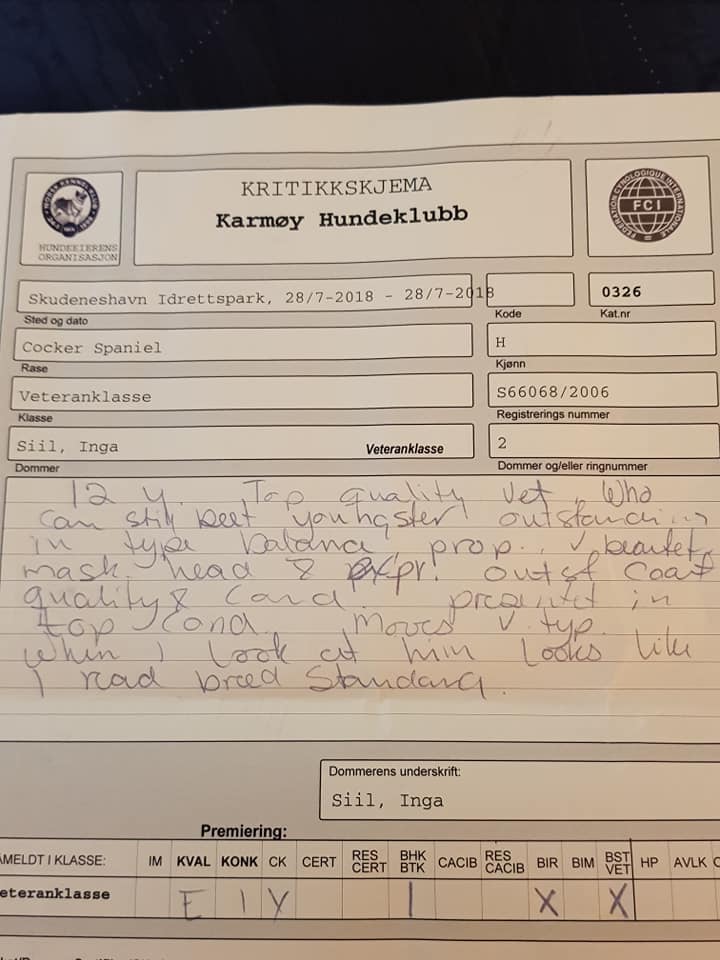 KRITIKKSKJEMA
Karmøy Hundeklubb
NORSK KENNEL KLUB
HUNDEEIERENS
ORGANISASJON
FCI
FEDERATION CYNOLOGIQUE INTERNATIONALE
Skudeneshavn Idrettspark, 28/7-2018 - 28/7-2018
0326
Sted og dato
Kode
Kat.nr
Cocker Spaniel
H
Rase
Kjønn
Veteranklasse
S66068/2006
Klasse
Registrerings nummer
Siil, Inga
Veteranklasse
2
Dommer
Dommer og/eller ringnummer
12 y. Top quality vet, who
can still beet youngster outstanding
in type balance, prop., v beautet,
mask. head & expr. outst coat
quality & cond. presentet in
top cond. Moves v typ.
When I look at him looks like
I read breed Standard.
Dommerens underskrift:
Siil, Inga
Premiering:
AMELDT I KLASSE: IM KVAL KONK CK CERT RES CERT BHK BTK CACIB RES CACIB BIR BIM BST VET HP AVLK
eteranklasse E 1 Y 1 X X